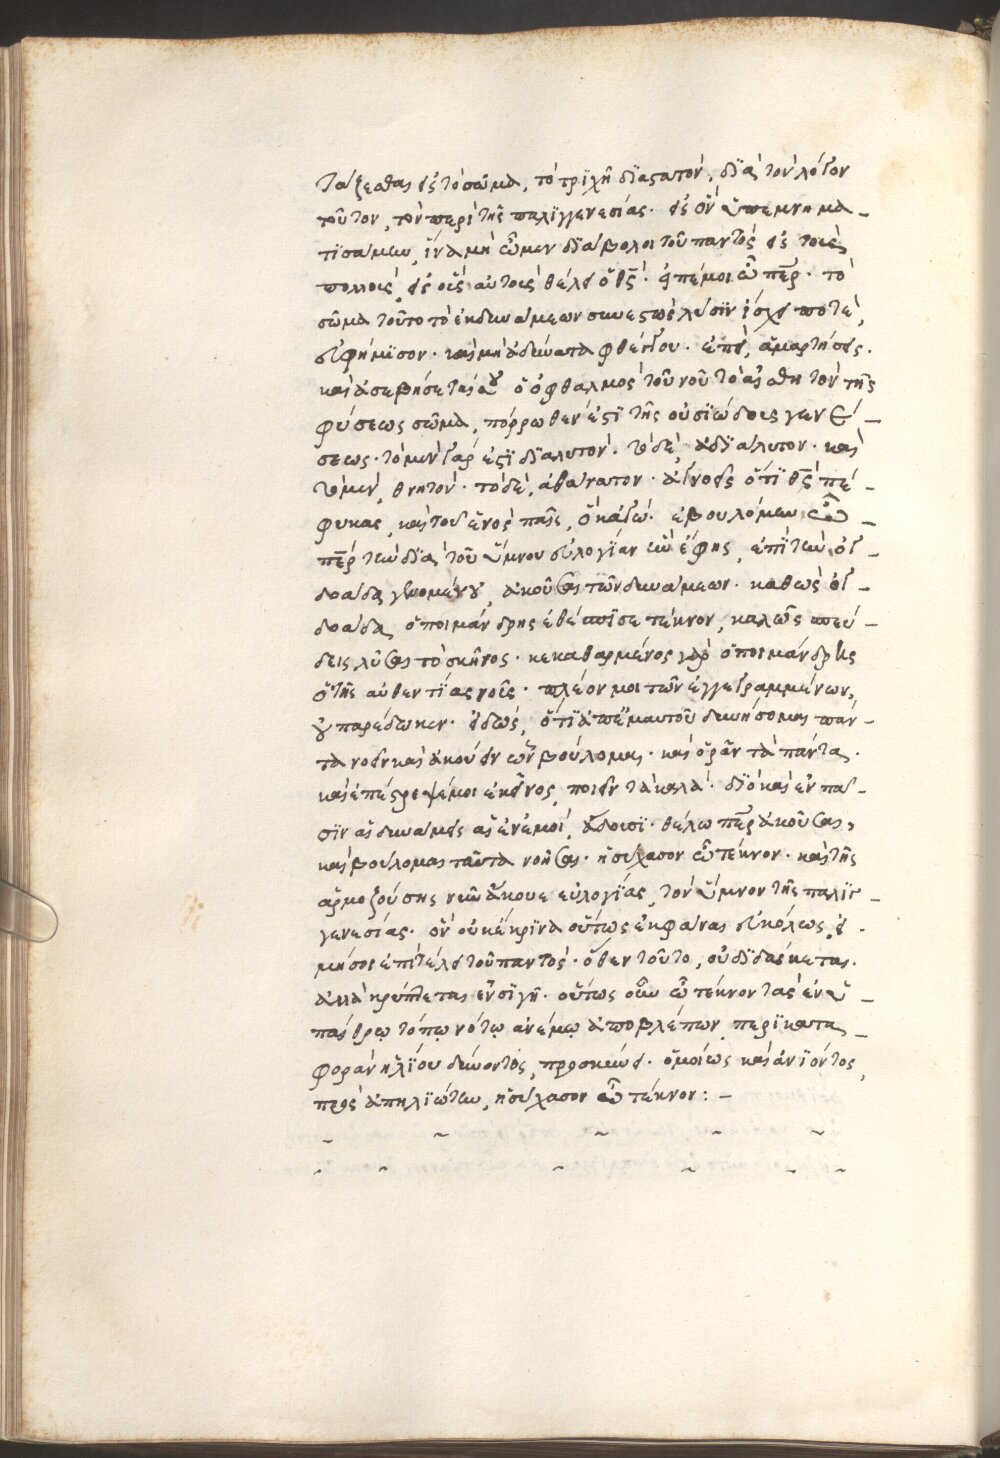 τάξεσθαι εἰς τὸ σῶμα, τὸ τριχῆ διαστατόν, διὰ τὸν λόγον
τοῦτον, τὸν περὶ τῆς παλιγγενεσίας. εἰς ὃν ὑπεμνημα-
τισάμην, ἵνα μὴ ὦμεν διάβολοι τοῦ παντὸς εἰς τοὺς
πολλοὺς, εἰς οὓς αὐτοὺς θέλει ὁ θς̅. εἰπέ μοι ὦ περ̅. τὸ
σῶμα τοῦτο τὸ ἐκ δυνάμεων συνεστὼς λύσιν ἴσχει ποτέ,
εὐφήμισον. καὶ μὴ ἀδύνατα φθέγγου. ἐπεὶ, ἁμαρτήσεις.
καὶ ἀσεβήσεταί σου ὁ ὀφθαλμὸς τοῦ νοῦ τὸ αἰσθητὸν τῆς
φύσεως σῶμα, πόρρωθέν ἐστι τῆς οὐσιώδους γενέ-
σεως. τὸ μὲν γάρ ἐστι διαλυτόν. τὸ δὲ, ἀδιάλυτον. καὶ
τὸ μὲν, θνητόν. τὸ δὲ, ἀθάνατον. ἀγνοεῖς ὅτι θς̅ πέ-
φυκας, καὶ τοῦ ἑνὸς παῖς, ὃ κἀγώ. ἐβουλόμην ὦ
περ̅ τὴν διὰ τοῦ ὕμνου εὐλογίαν ἣν ἔφης, ἐπὶ τὴν ὀγ-
δοάδα γενομένου, ἀκοῦσαι τῶν δυνάμεων. καθὼς ὀγ-
δοάδα ὁ ποιμάνδρης ἐθέσπισε τέκνον, καλῶς σπεύ-
δεις λῦσαι τὸ σκῆνος. κεκαθαρμένος γὰρ ὁ ποιμάνδρης
ὁ τῆς αὐθεντίας νοῦς. πλέον μοι τῶν ἐγγεγραμμένων,
οὐ παρέδωκεν. εἰδώς, ὅτι ἀπ' ἐμαυτοῦ δυνήσομαι πάν-
τα νοεῖν καὶ ἀκούειν ὧν βούλομαι. καὶ ὁρᾶν τὰ πάντα.
καὶ ἐπέτρεψέ μοι ἐκεῖνος, ποιεῖν τὰ καλά. διὸ καὶ ἐν πᾶ-
σιν αἱ δυνάμεις αἱ ἐν ἐμοί, ᾄδουσι. θέλω περ̅ ἀκοῦσαι,
καὶ βούλομαι ταῦτα νοῆσαι. ἡσύχασον ὦ τέκνον. καὶ τῆς
ἁρμοζούσης νῦν ἄκουε εὐλογίας, τὸν ὕμνον τῆς παλιγ-
γενεσίας. ὃν οὐκ ἔκρινα οὕτως ἐκφάναι εὐκόλως, εἰ
μὴ σοὶ ἐπὶ τέλει τοῦ παντός. ὅθεν τοῦτο, οὐ διδάσκεται.
ἀλλὰ κρύπτεται ἐν σιγῇ. οὕτως οὖν ὦ τέκνον στὰς ἐν ὑ-
παίθρῳ τόπῳ νότῳ ἀνέμῳ ἀποβλέπων, περὶ κατα-
φορὰν ἡλίου δύνοντος, προσκύνει. ὁμοίως καὶ ἀνιόντος,
πρὸς ἀπηλιώτην, ἡσύχασον ὦ τέκνον: -